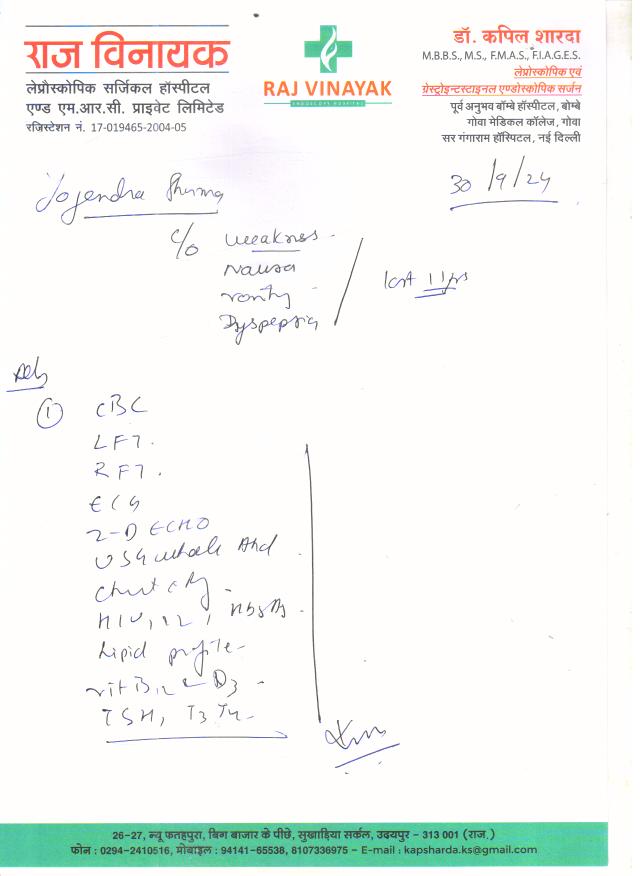 राज विनायक
लेप्रौस्कोपिक सर्जिकल हॉस्पीटल
एण्ड एम.आर.सी. प्राइवेट लिमिटेड
रजिस्टेशन नं. 17-019465-2004-05
RAJ VINAYAK
ENDOSCOPY HOSPITAL
डॉ. कपिल शारदा
M.B.B.S., M.S., F.M.A.S., F.I.A.G.E.S.
लेप्रोस्कोपिक एवं
गेस्ट्रोइन्टस्टाइनल एण्डोस्कोपिक सर्जन
पूर्व अनुभव बॉम्बे हॉस्पीटल, बोम्बे
गोवा मेडिकल कॉलेज, गोवा
सर गंगाराम हॉस्पिटल, नई दिल्ली
30/9/24
Yogendra Sharma
c/o weakness
Nausea
Dyspepsia
last
Adv
1 CBC
LFT.
RFT.
ECG
2-D ECHO
USG whole Abd
HIV,
Lipid profile
vit B12 & D3
TSH, T3 T4
26-27, न्यू फतहपुरा, बिग बाजार के पीछे, सुखाड़िया सर्कल, उदयपुर - 313 001 (राज.)
फोन : 0294-2410516, मोबाइल : 94141-65538, 8107336975 - E-mail : kapsharda.ks@gmail.com